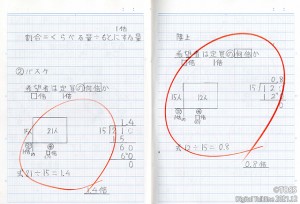 1倍
割合=くらべる量÷もとにする量
②バスケ
希望者は定員の何倍か
□倍 1倍
15人 21人
1.4
15)21.0
15
60
60
0
式21÷15=1.4
1.4倍
陸上
希望者は定員の何倍か
□倍 1倍
15人 12人
0.8
15)12.0
12 0
0
式12÷15=0.8
0.8倍
©TOSS